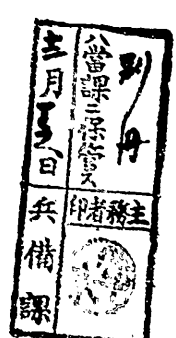 別冊
ハ當課ニ保管ス
主務者印
十二月
日
兵備課